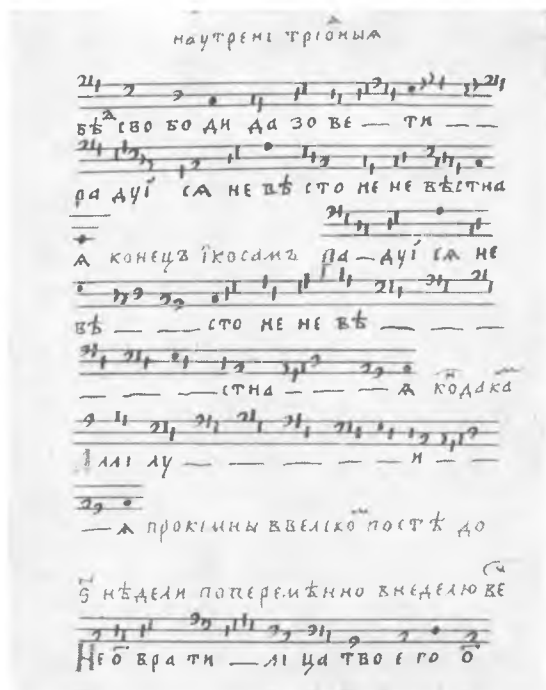 наутрені тріѡныѧ
бѣ сво бо ди да зо ве — ти — —
ра дуі сѧ не вѣ сто не не вѣстна
ѧ конецъ ікосамъ Ра — дуі сѧ не
вѣ — — сто не не вѣ — — —
— — — стна — — — ѧ
Аллі лу — — — — — и — —
— ѧ прокімны ввеліко постѣ до
ѕ нѣдели поперемѣнно внеделю ве
Не ѿ вра ти — лі ца твоего ѿ